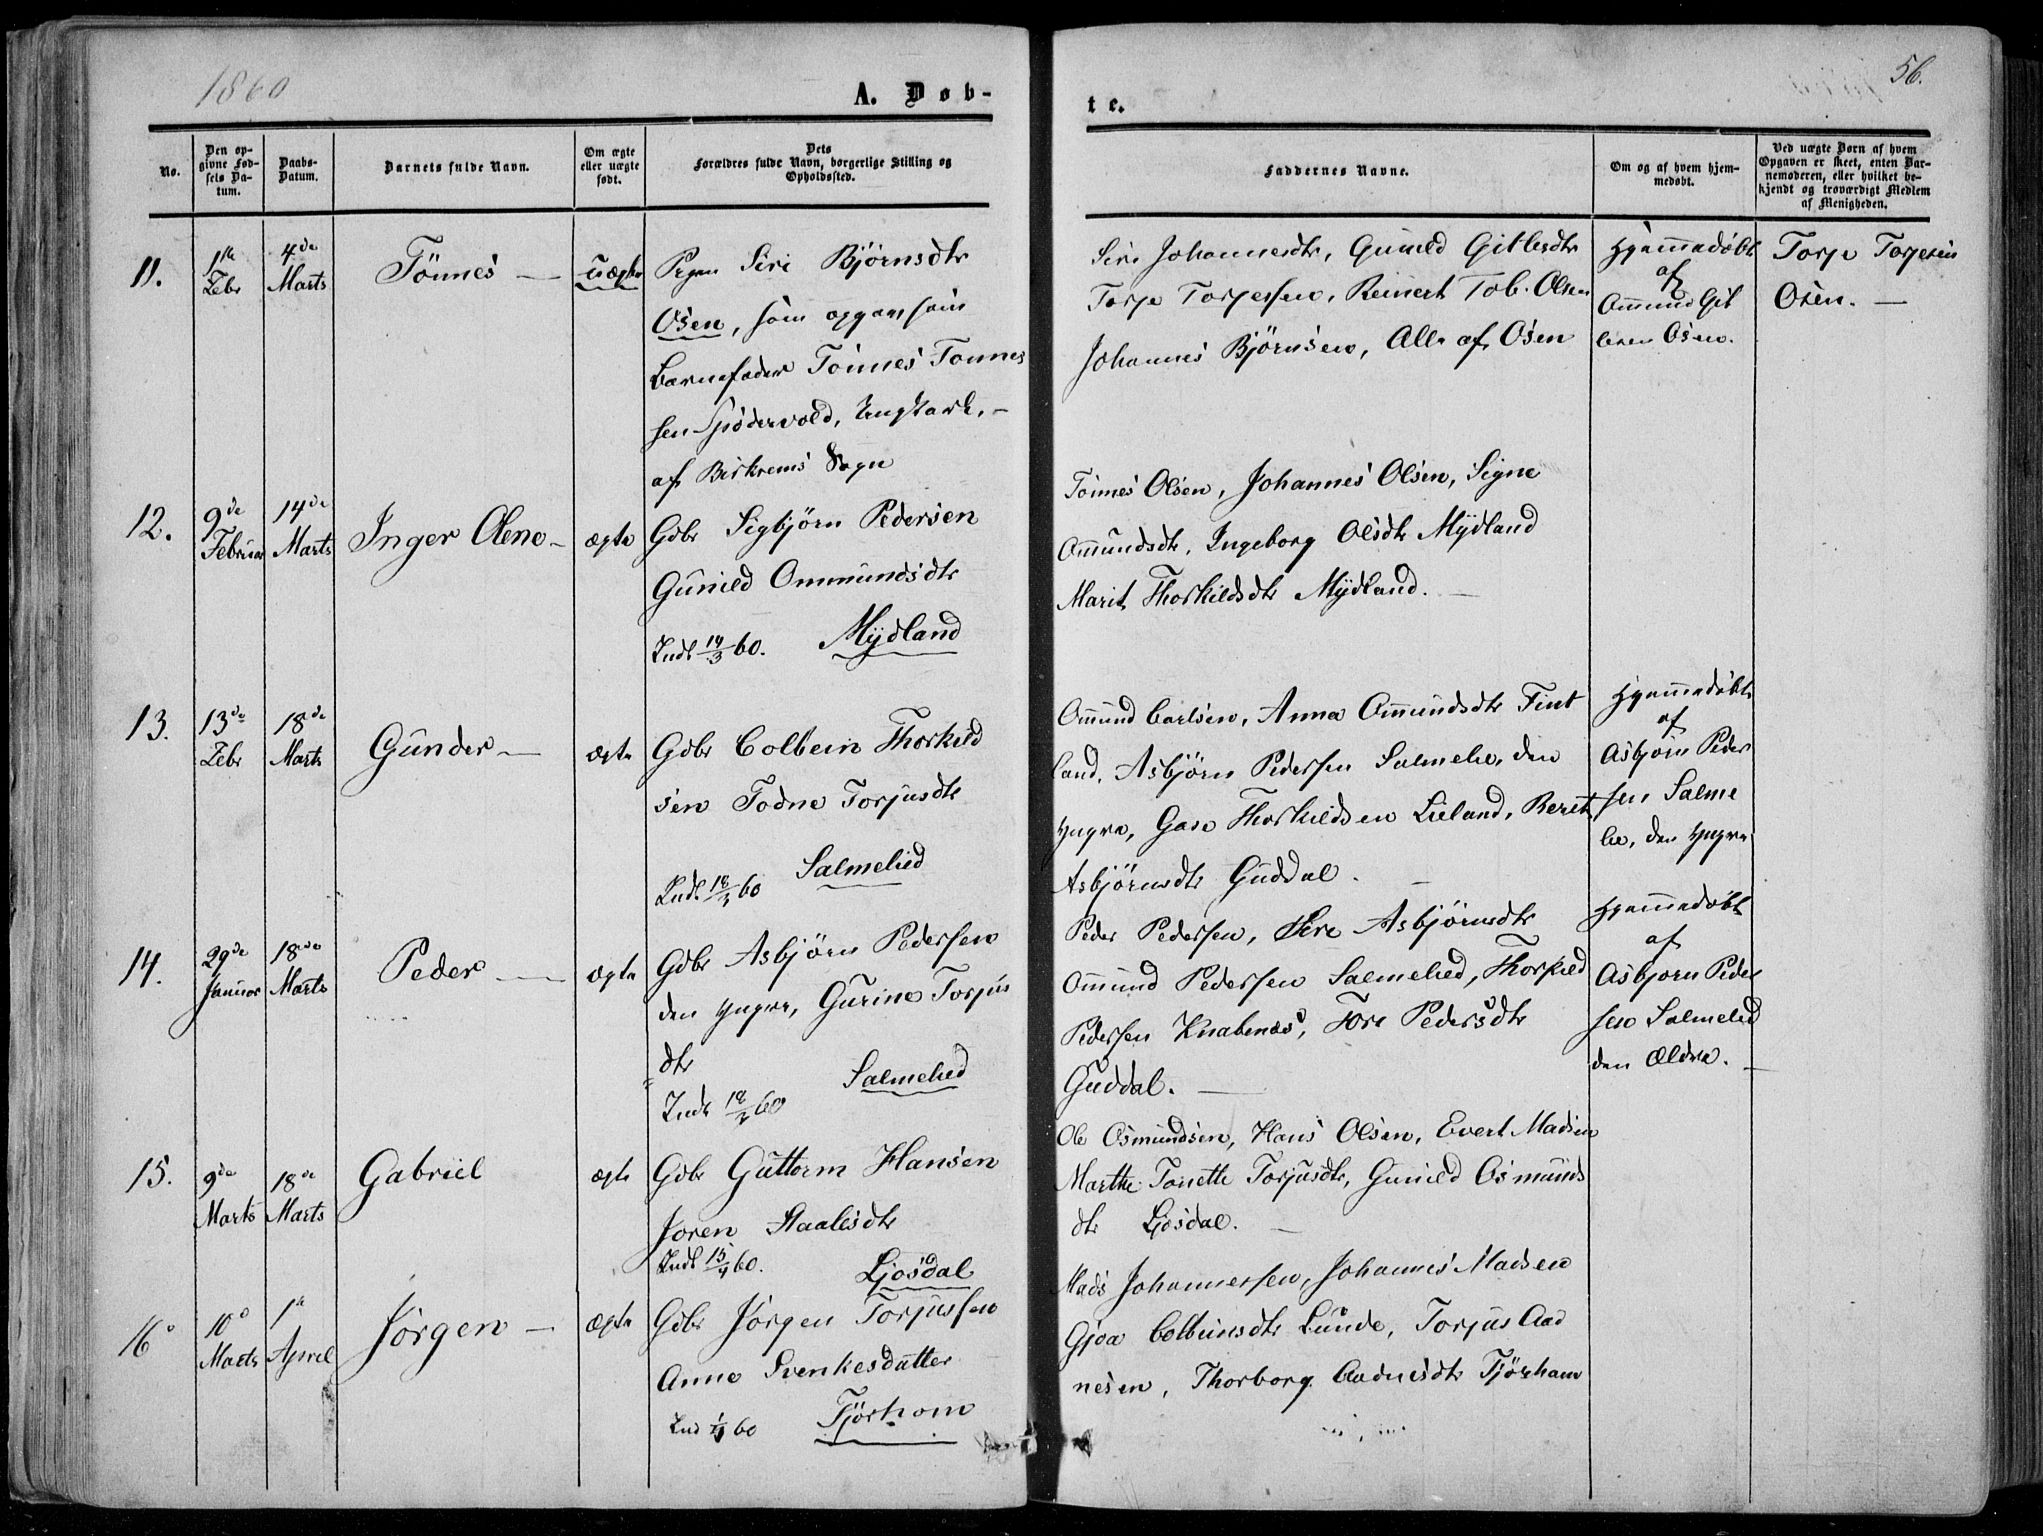 1860
A. Døb-
te.
56.
No.
Den op-
givne Fød-
sels Da-
tum.
Daabs-
Datum.
Barnets fulde Navn.
Om ægte
eller uægte
født.
Dets
Forældres fulde Navn, borgerlige Stilling og
Opholdssted.
Faddernes Navne.
Om og af hvem hjem-
medøbt.
Ved uægte Børn af hvem
Opgaven er skeet, enten Bar-
nemoderen, eller hvilket be-
kjendt og troværdigt Medlem
af Menigheden.
11.
1ste
Febr
4de
Marts
Tönnes —
Uægte
Pigen Siri Bjørnsdtr
Osen, som opgav som
Barnefader Tönnes Tönnes
sen Spödervold, Ungkarl, –
af Birkrems Sogn
Siri Johannesdtr, Gunild Gitlesdtr
Torje Torjessen, Reinert Tob. Olsen
Johannes Bjørnsen, Alle af Osen
Hjemmedøbt
af
Ommund Git
lesen Osen.
Torje Torjesen
Osen. —
12.
9de
Februar
14de
Marts
Inger Olene –
ægte
Gdbr Sigbjörn Pedersen
Gunild Ommundsdtr
Indt 14/3 60. Mydland
Tönnes Olsen, Johannes Olsen, Signe
Omundsdtr, Ingeborg Olsdtr Mydland
Marit Thorkildsdtr Mydland. —
13.
13de
Febr
18de
Marts
Gunder –
ægte
Gdbr Colbein Thorkild
sen Todne Torjusdtr
Indt 18/3 60 Salmelied
Omund Carlsen, Anna Omundsdtr Fint
land, Asbjörn Pedersen Salmelie, den
yngre, Thorkildsen Lieland, Berit
Asbjörnsdtr Guddal. —
Hjemmedøbt
af
Asbjörn Peder
sen Salme
lie, den yngre
14.
29de
Januar
18de
Marts
Peder —
ægte
Gdbr Asbjörn Pedersen
den yngre, Gurine Torjus
dtr
Indt 18/3 60 Salmelied
Peder Pedersen, Sire Asbjörnsdtr
Omund Pedersen Salmelied, Thorkild
Pedersen Knabenæs, Tore Pedersdtr
Guddal. —
Hjemmedøbt
af
Asbjorn Peder
sen Salmelied
den Ældre. —
15.
9de
Marts
18de
Marts
Gabriel
ægte
Gdbr Guttorm Hansen
Joren Staalesdtr
Indt 15/4 60. Ljosdal
Ole Osmundsen, Hans Olsen, Evert Madsen
Marthe Tonette Torjusdtr, Gunild Osmunds
dtr Ljosdal. —
16.
10de
Marts
1ste
April
Jörgen —
ægte
Gdbr Jörgen Torjussen
Anne Svenkesdatter
Ind 1/4 60 Tjörhom
Mads Johannessen, Johannes Madsen
Gjoa Colbeinsdtr Lunde, Torjus Aad
nesen, Thorborg Aadnesdtr Tjörhom